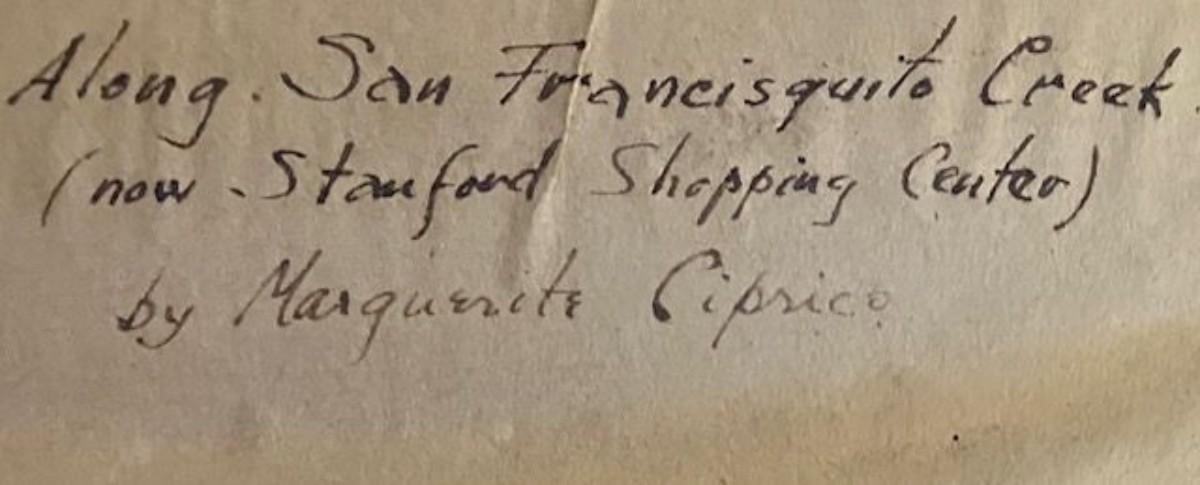 Along San Francisquito Creek
(now Stanford Shopping Center)
by Marguerite Ciprico